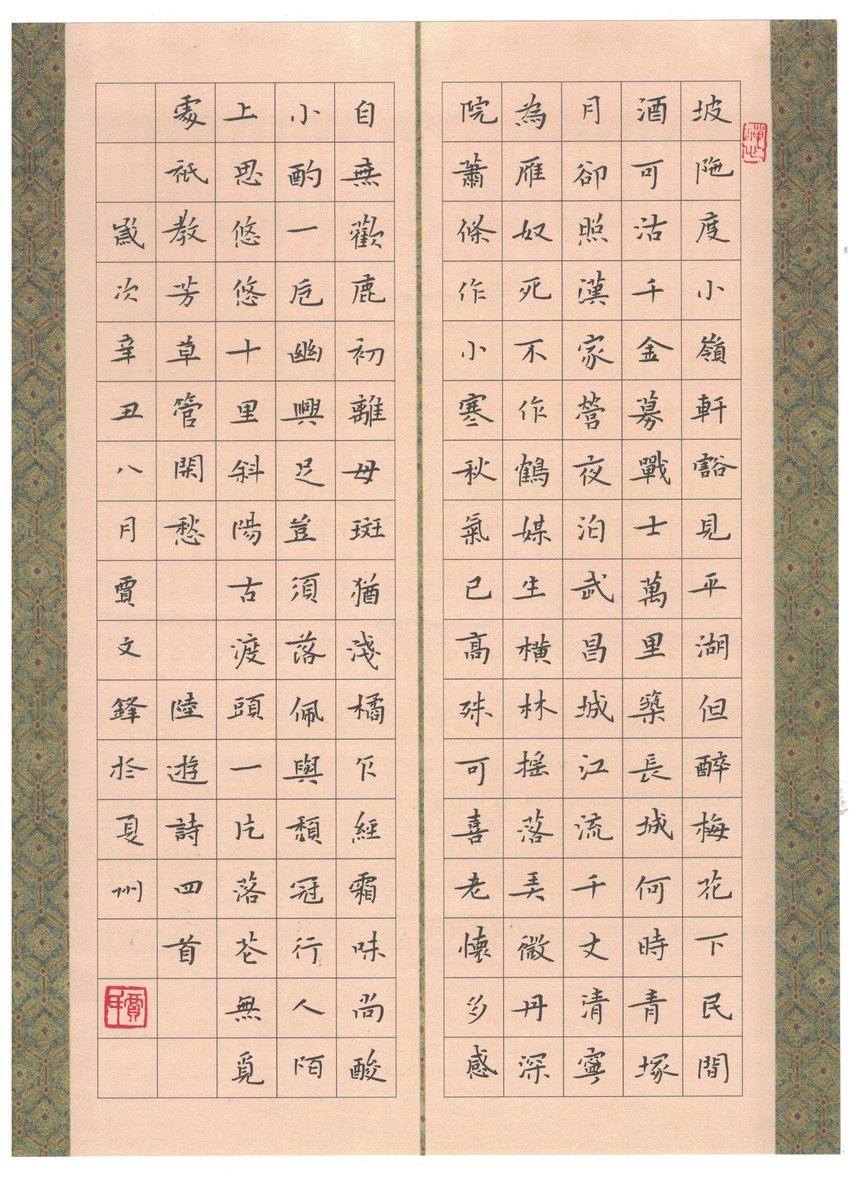 坡陁度小嶺軒豁見平湖但醉梅花下民間
酒可沽千金募戰士萬里築長城何時青塚
月卻照漢家營夜泊武昌城江流千丈清寧
為雁奴死不作鶴媒生橫林摇落弄微丹深
院蕭條作小寒秋氣已高殊可喜老懷多感
自無歡鹿初離母斑猶淺橘乍經霜味尚酸
小酌一卮幽興足豈須落佩與頹冠行人陌
上思悠悠十里斜陽古渡頭一片落花無覓
處祇教芳草管閑愁 陸遊詩四首
歲次辛丑八月賈文鋒於夏州